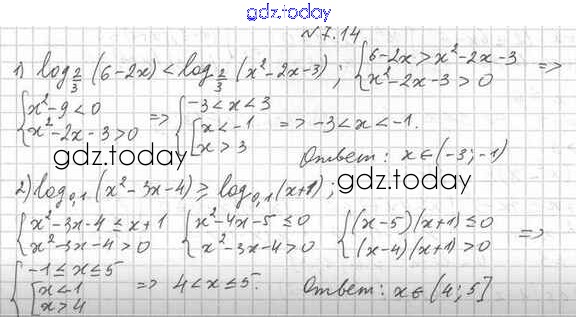 gdz.today
№7.14
1) log_{2/3} (6-2x) < log_{2/3} (x²-2x-3) ; { 6-2x > x²-2x-3 ; x²-2x-3 > 0 =>
{ x²-9 < 0 ; x²-2x-3 > 0 => { -3 < x < 3 ; [ x < -1 ; x > 3 => -3 < x < -1.
Ответ: x∈(-3;-1)
gdz.today gdz.today
2) log_{0,1} (x²-3x-4) ≥ log_{0,1} (x+1) ;
{ x²-3x-4 ≤ x+1 ; x²-3x-4 > 0 { x²-4x-5 ≤ 0 ; x²-3x-4 > 0 { (x-5)(x+1) ≤ 0 ; (x-4)(x+1) > 0 =>
{ -1 ≤ x ≤ 5 ; [ x < -1 ; x > 4 => 4 < x ≤ 5. Ответ: x∈(4;5]